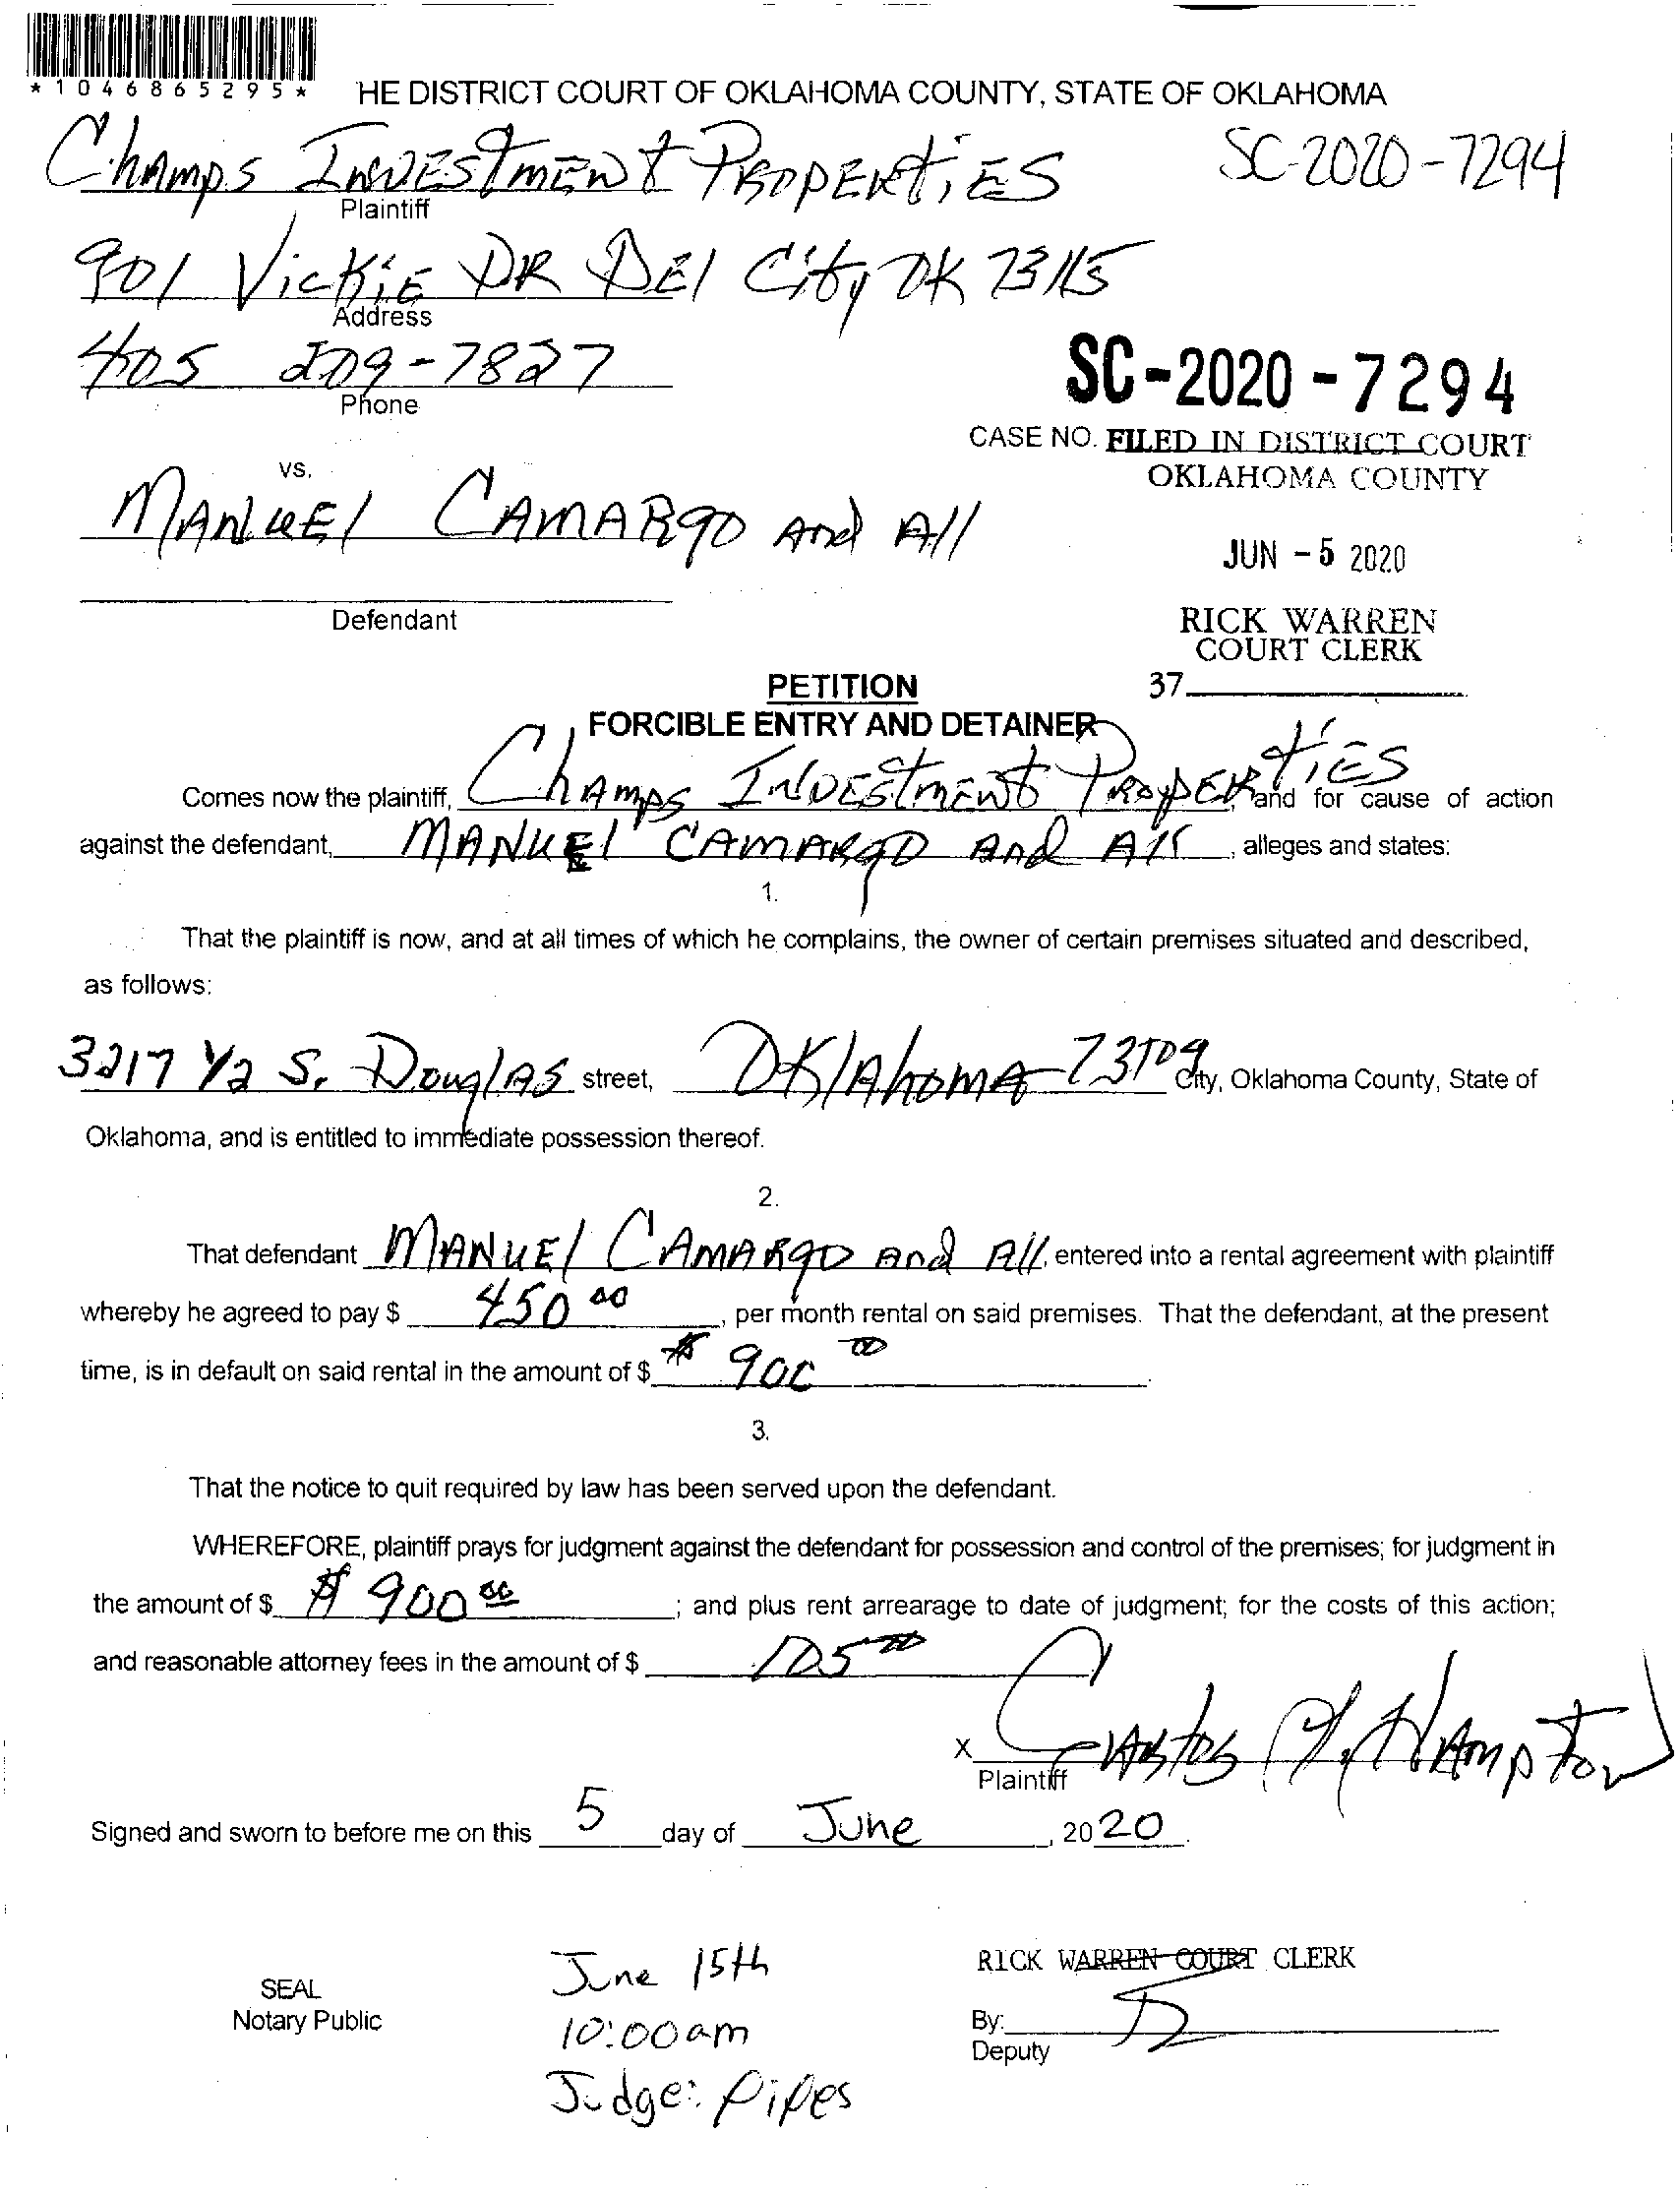 *1046865295*
HE DISTRICT COURT OF OKLAHOMA COUNTY, STATE OF OKLAHOMA
Champs Investment Properties SC-2020-7294
Plaintiff
901 Vickie DR Del City OK 73115
Address
405 209-7827
Phone
SC-2020-7294
CASE NO. FILED IN DISTRICT COURT
OKLAHOMA COUNTY
vs.
Manuel Camargo And All
JUN -5 2020
Defendant
RICK WARREN
COURT CLERK
37
PETITION
FORCIBLE ENTRY AND DETAINER
Comes now the plaintiff, Champs Investment Properties, and for cause of action
against the defendant, Manuel Camargo And All, alleges and states:
1.
That the plaintiff is now, and at all times of which he complains, the owner of certain premises situated and described,
as follows:
3217 1/2 S. Douglas street, Oklahoma 73109 City, Oklahoma County, State of
Oklahoma, and is entitled to immediate possession thereof.
2.
That defendant Manuel Camargo And All, entered into a rental agreement with plaintiff
whereby he agreed to pay $ 450 00, per month rental on said premises. That the defendant, at the present
time, is in default on said rental in the amount of $ $ 900 00.
3.
That the notice to quit required by law has been served upon the defendant.
WHEREFORE, plaintiff prays for judgment against the defendant for possession and control of the premises; for judgment in
the amount of $ $ 900 00; and plus rent arrearage to date of judgment; for the costs of this action;
and reasonable attorney fees in the amount of $ 105 00
x Hampton
Plaintiff
Signed and sworn to before me on this 5 day of June, 2020.
June 15th
RICK WARREN COURT CLERK
SEAL
Notary Public
10:00am
By:
Deputy
Judge: Pipes